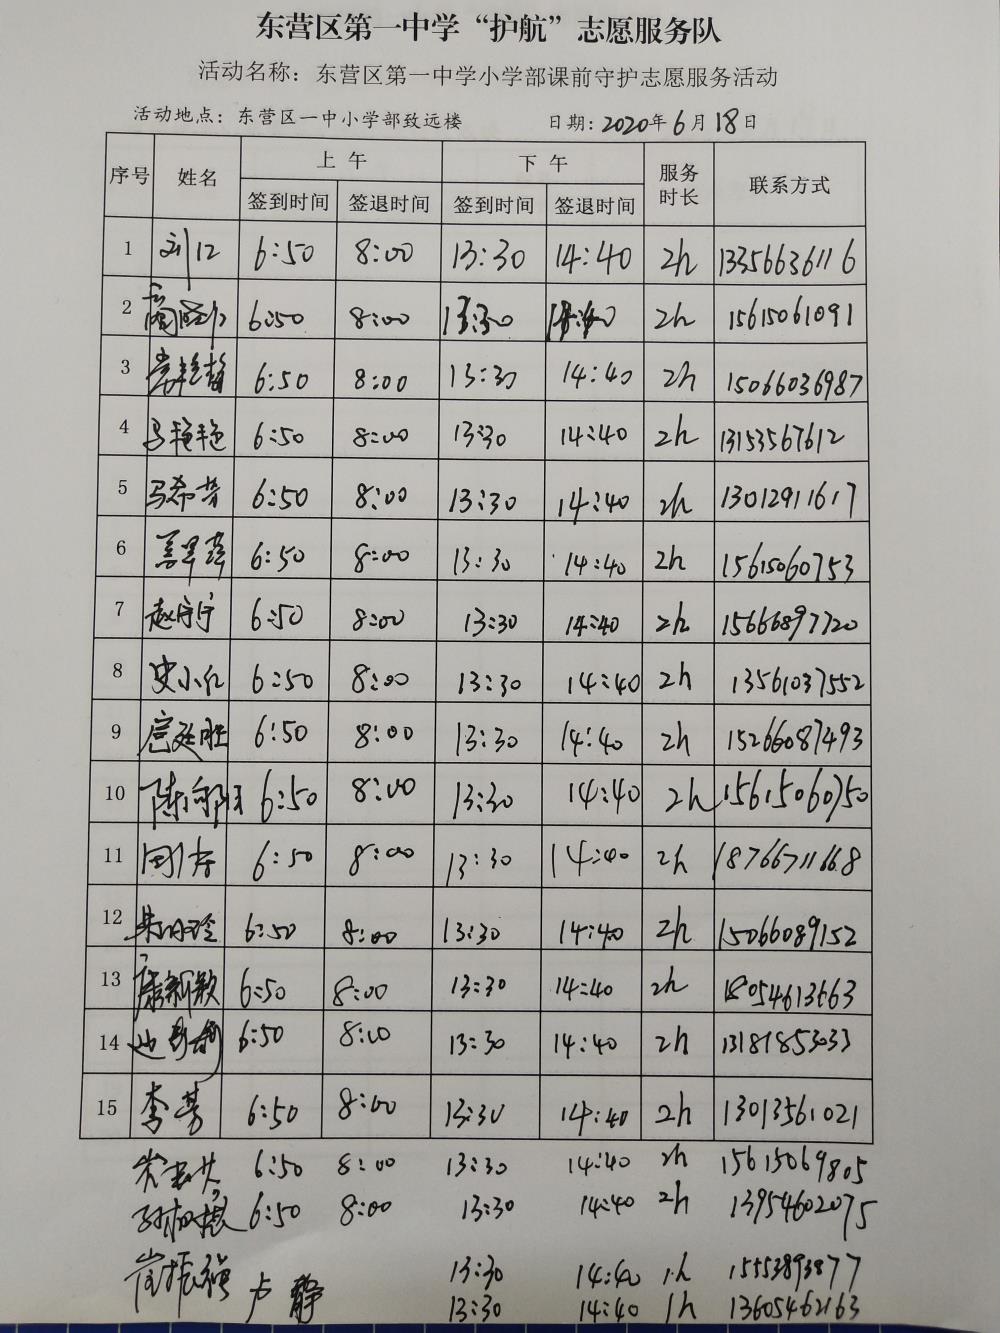 东营区第一中学“护航”志愿服务队
活动名称：东营区第一中学小学部课前守护志愿服务活动
活动地点：东营区一中小学部致远楼 日期：2020年6月18日
序号 姓名 上午 下午 服务时长 联系方式
签到时间 签退时间 签到时间 签退时间
1 刘江 6:50 8:00 13:30 14:40 2h 13356636116
2 6:50 8:00 13:30 14:40 2h 15615061091
3 常艳梅 6:50 8:00 13:30 14:40 2h 15066036987
4 马艳艳 6:50 8:00 13:30 14:40 2h 13153567612
5 马希芳 6:50 8:00 13:30 14:40 2h 13012911617
6 6:50 8:00 13:30 14:40 2h 15615060753
7 赵守宁 6:50 8:00 13:30 14:40 2h 15666897720
8 史小红 6:50 8:00 13:30 14:40 2h 13561037552
9 6:50 8:00 13:30 14:40 2h 15266087493
10 6:50 8:00 13:30 14:40 2h 15615060750
11 6:50 8:00 13:30 14:40 2h 18766711668
12 6:50 8:00 13:30 14:40 2h 15066089152
13 康新颖 6:50 8:00 13:30 14:40 2h 18054613663
14 6:50 8:00 13:30 14:40 2h 13181853033
15 李芳 6:50 8:00 13:30 14:40 2h 13013561021
6:50 8:00 13:30 14:40 2h 15615069805
6:50 8:00 13:30 14:40 2h 13954602075
崔振强 13:30 14:40 1h 15553893877
卢静 13:30 14:40 1h 13605462163